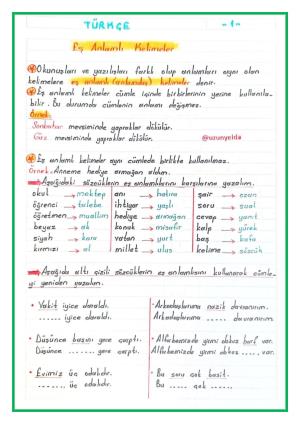 TÜRKÇE -1-
Eş Anlamlı Kelimeler
Okunuşları ve yazılışları farklı olup anlamları aynı olan
kelimelere eş anlamlı (anlamdaş) kelimeler denir.
Eş anlamlı kelimeler cümle içinde birbirlerinin yerine kullanıla-
bilir. Bu durumda cümlenin anlamı değişmez.
Örnek
Sonbahar mevsiminde yapraklar dökülür.
Güz mevsiminde yapraklar dökülür. @uzunyelda
Eş anlamlı kelimeler aynı cümlede birlikte kullanılmaz.
Örnek: Anneme hediye armağan aldım.
Aşağıdaki sözcüklerin eş anlamlılarını karşılarına yazalım.
okul → mektep anı → hatıra şair → ozan
öğrenci → talebe ihtiyar → yaşlı soru → sual
öğretmen → muallim hediye → armağan cevap → yanıt
beyaz → ak konuk → misafir kalp → yürek
siyah → kara vatan → yurt baş → kafa
kırmızı → al millet → ulus kelime → sözcük
Aşağıda altı çizili sözcüklerin eş anlamlısını kullanarak cümle-
yi yeniden yazalım.
Vakit iyice daraldı. Arkadaşlarına nazik davranırım.
...... iyice daraldı. Arkadaşlarına ...... davranırım.
Düşünce başını yere çarptı. Alfabemizde yirmi dokuz harf var.
Düşünce ...... yere çarptı. Alfabemizde yirmi dokuz ..... var.
Evimiz üç odalıdır. Bu soru çok basit.
...... üç odalıdır. Bu ..... çok .....